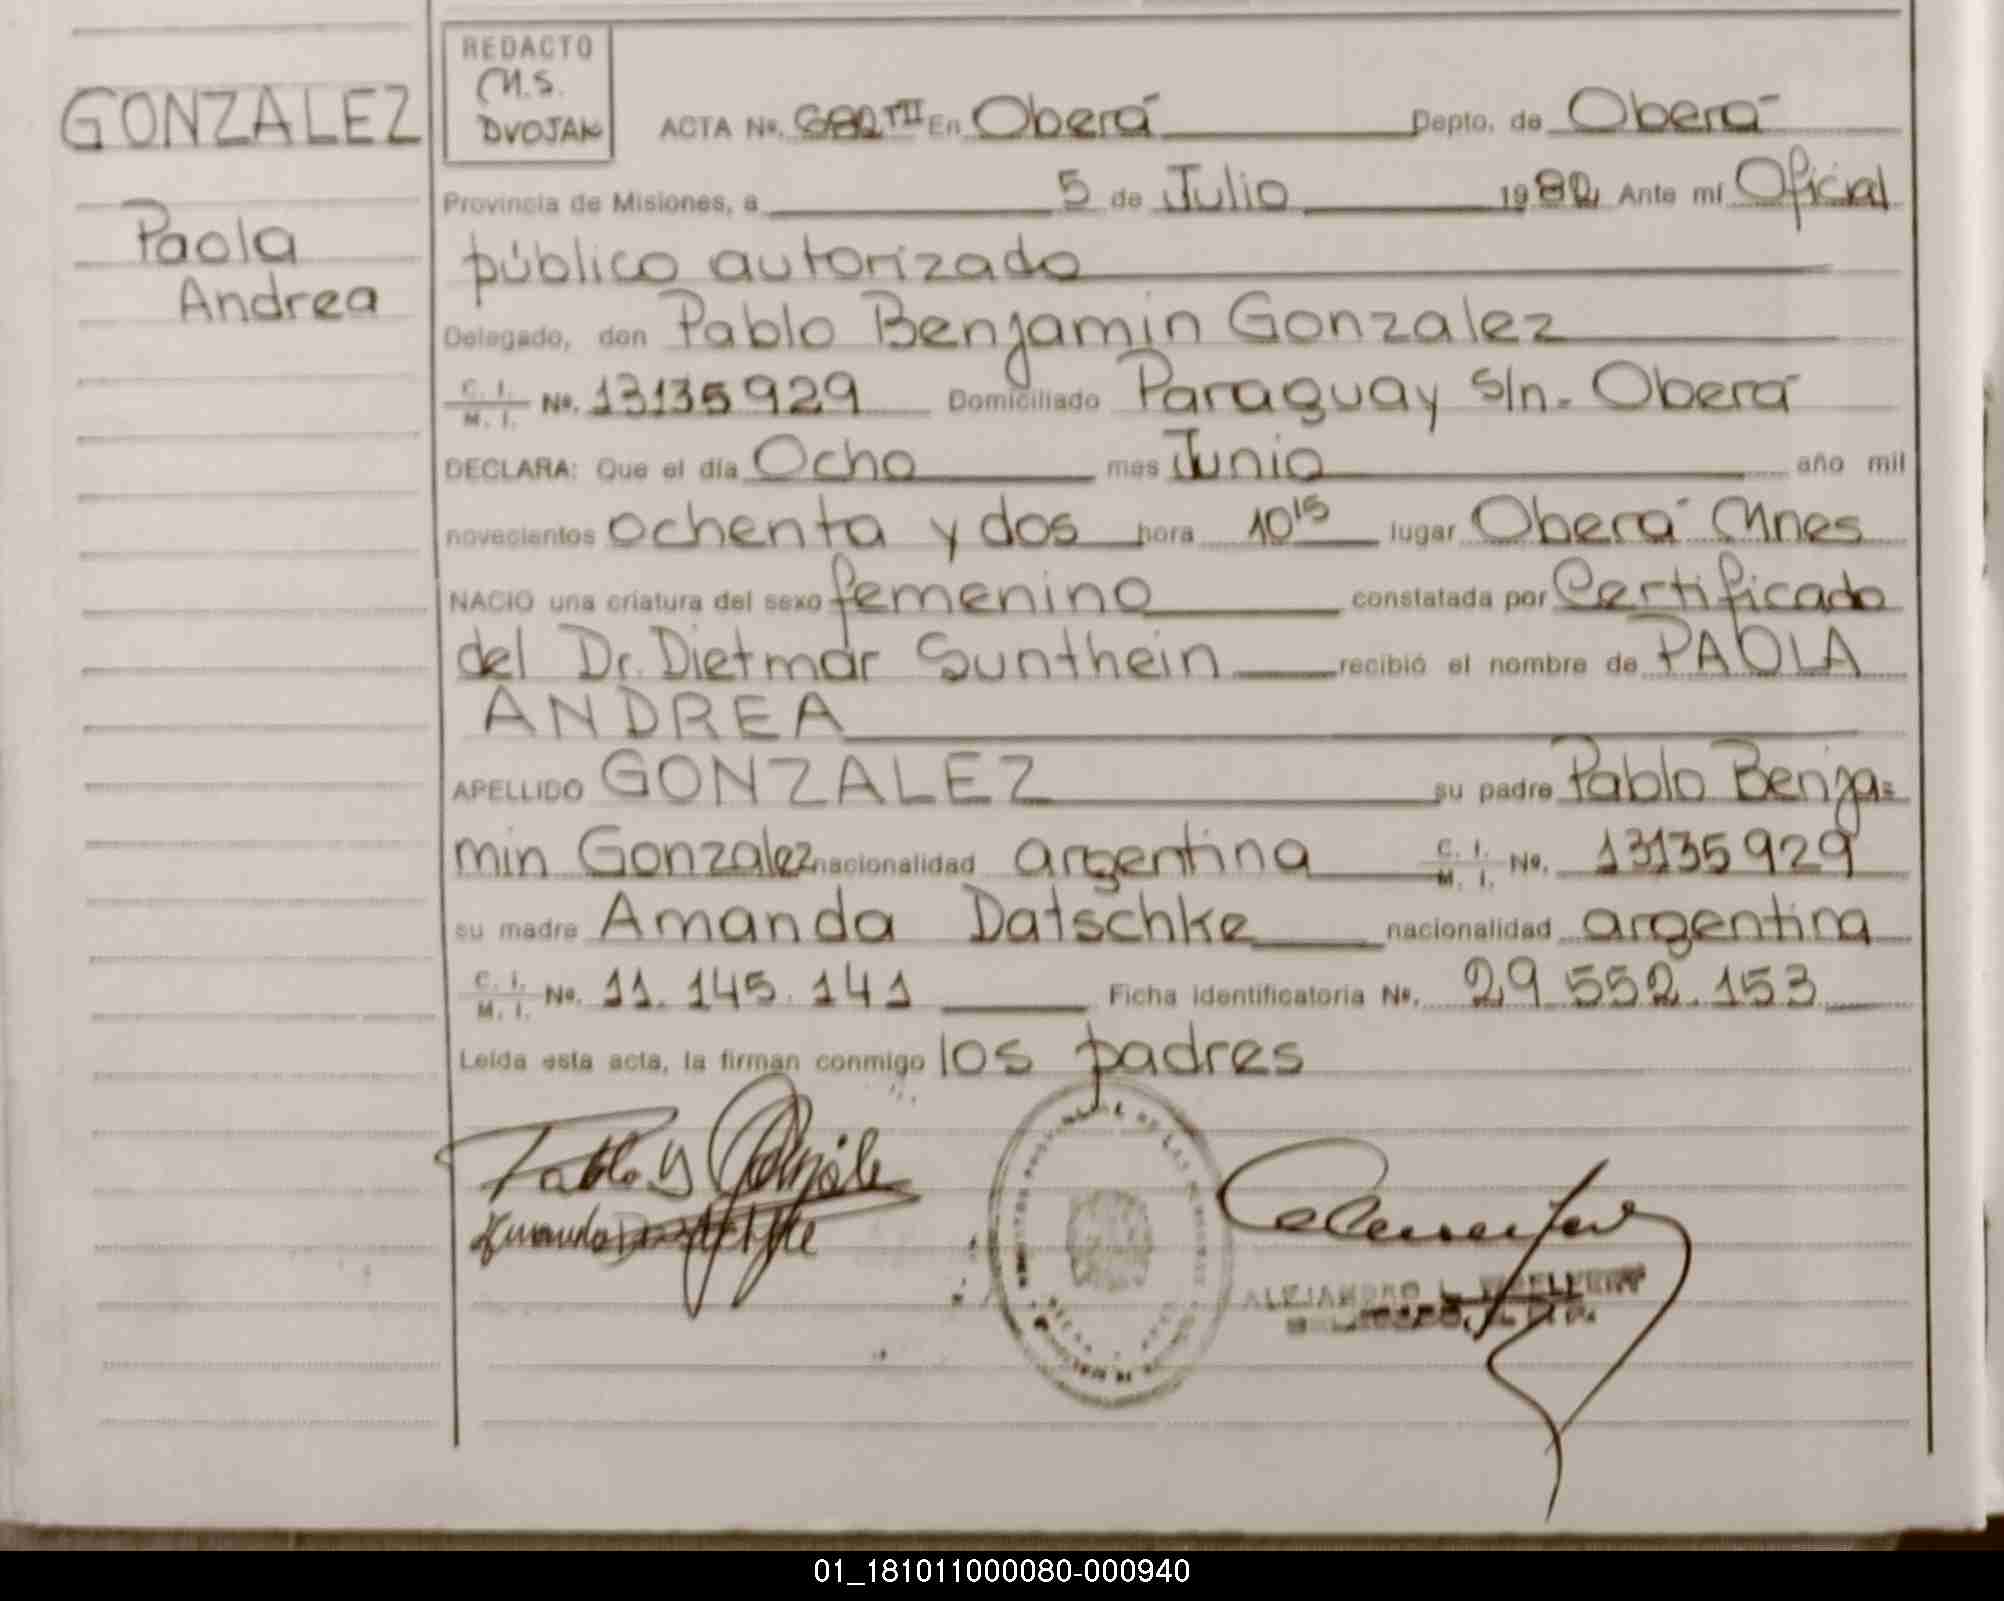 GONZALEZ
Paola
Andrea
REDACTO
M.S.
DVOJAK
ACTA No. 682 TII En Oberá Depto. de Oberá
Provincia de Misiones, a 5 de Julio 1982 Ante mí Oficial
público autorizado
Delegado, don Pablo Benjamin Gonzalez
C. I. M. I. No. 13135929 Domiciliado Paraguay s/n. Oberá
DECLARA: Que el día Ocho mes Junio año mil
novecientos ochenta y dos hora 10 15 lugar Oberá Mnes
NACIO una criatura del sexo femenino constatada por Certificado
del Dr. Dietmar Sunthein recibió el nombre de PAOLA
ANDREA
APELLIDO GONZALEZ su padre Pablo Benja=
min Gonzalez nacionalidad argentina C. I. M. I. No. 13135929
su madre Amanda Datschke nacionalidad argentina
C. I. M. I. No. 11.145.141 Ficha identificatoria No. 29.552.153
Leída esta acta, la firman conmigo los padres
ALEJANDRO L.
01_181011000080-000940